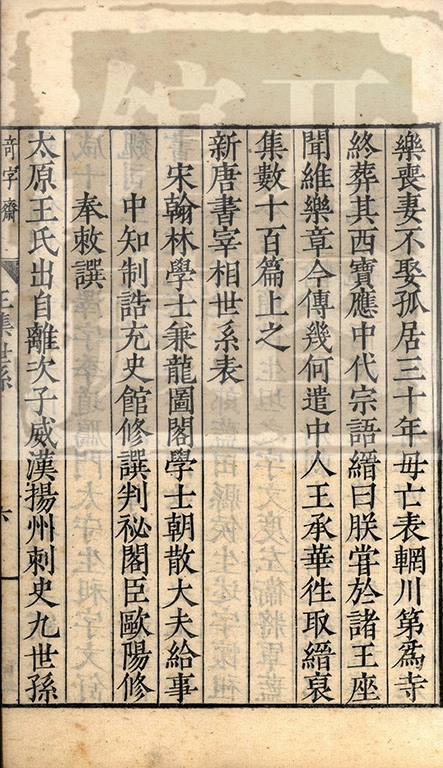 樂喪妻不娶孤居三十年毋亡表輞川第爲寺
終葬其西寶應中代宗語縉曰朕嘗於諸王座
聞維樂章今傳幾何遣中人王承華徃取縉裒
集數十百篇上之
新唐書宰相世系表
宋翰林學士兼龍圖閣學士朝散大夫給事
中知制誥充史館修譔判祕閣臣歐陽修
奉敕譔
太原王氏出自離次子威漢揚州刺史九世孫
奇字齋
王集世系
六